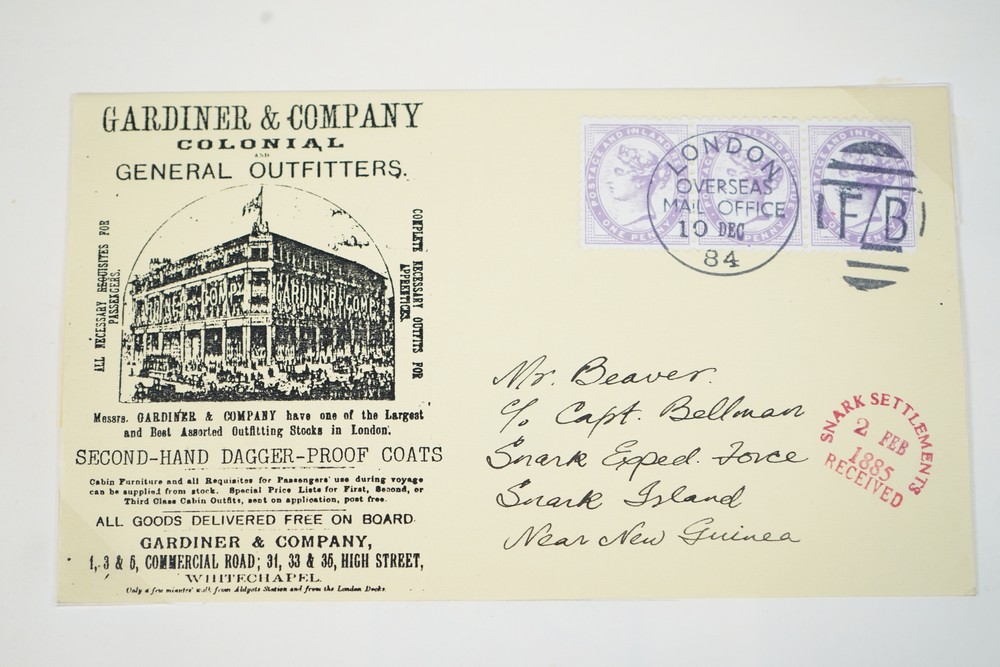 GARDINER & COMPANY
COLONIAL
AND
GENERAL OUTFITTERS.
ALL NECESSARY REQUISITES FOR
PASSENGERS.
COMPLETE NECESSARY OUTFITS FOR
APPRENTICES.
GARDINER & COMPY
Messrs. GARDINER & COMPANY have one of the Largest
and Best Assorted Outfitting Stocks in London.
SECOND-HAND DAGGER-PROOF COATS
Cabin Furniture and all Requisites for Passengers' use during voyage
can be supplied from stock. Special Price Lists for First, Second, or
Third Class Cabin Outfits, sent on application, post free.
ALL GOODS DELIVERED FREE ON BOARD
GARDINER & COMPANY,
1, 3 & 5, COMMERCIAL ROAD; 31, 33 & 35, HIGH STREET,
WHITECHAPEL.
Only a few minutes' walk from Aldgate Station and from the London Docks.
POSTAGE AND INLAND
ONE PENNY
LONDON
OVERSEAS
MAIL OFFICE
10 DEC
84
F/B
Mr. Beaver.
c/o Capt. Bellman
Snark Exped. Force
Snark Island
Near New Guinea
SNARK SETTLEMENTS
2 FEB
1885
RECEIVED